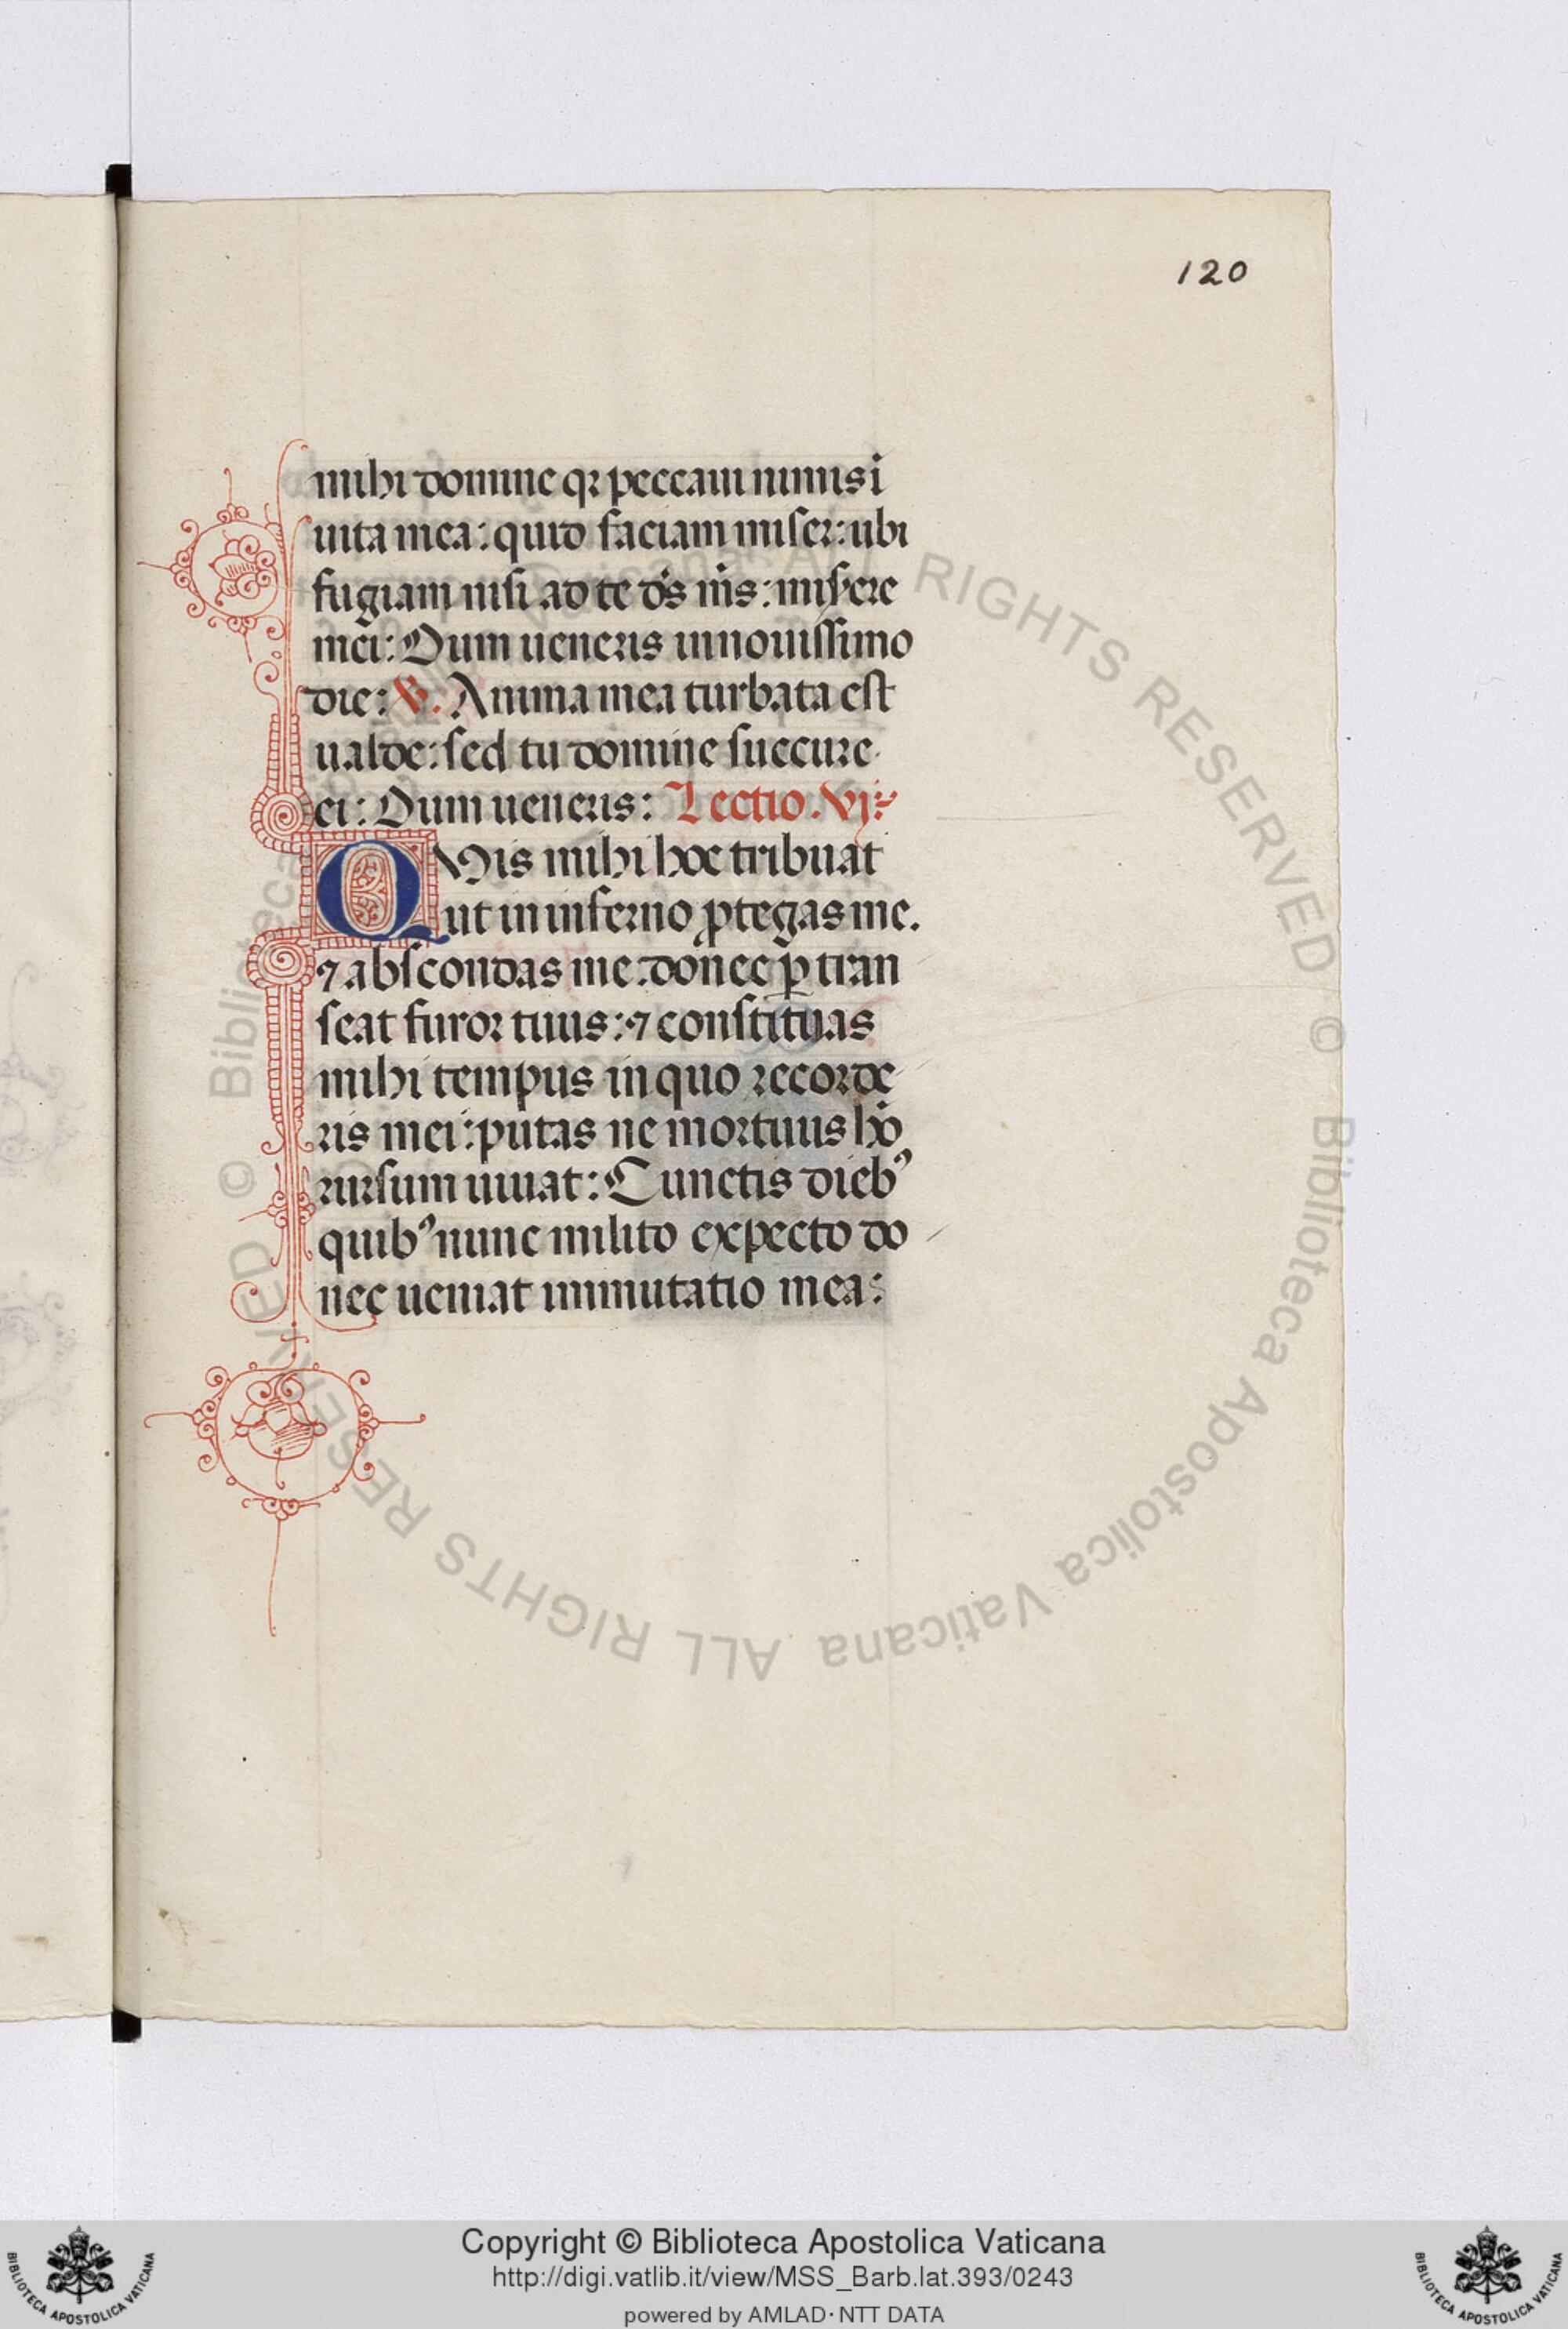 120
mihi domine qꝛ peccaui nimis ī
uita mea: quid faciam miser: ubi
fugiam nisi ad te d̄s m̄s: misere
mei: Dum ueneris in nouissimo
die: ℣. Anima mea turbata est
ualde: sed tu domine succure
ei: Dum ueneris: Lectio. vj:
QVis mihi hoc tribuat
ut in inferno ꝓtegas me.
⁊ abscondas me: donec ꝑ tran
seat furor tuus: ⁊ constituas
mihi tempus in quo recorde
ris mei: putas ne mortuus hō
rursum uiuat: Cunctis diebꝰ
quibꝰ nunc milito expecto do
nec ueniat immutatio mea:
© Biblioteca Apostolica Vaticana ALL RIGHTS RESERVED
Copyright © Biblioteca Apostolica Vaticana
http://digi.vatlib.it/view/MSS_Barb.lat.393/0243
powered by AMLAD·NTT DATA
BIBLIOTECA APOSTOLICA VATICANA
BIBLIOTECA APOSTOLICA VATICANA